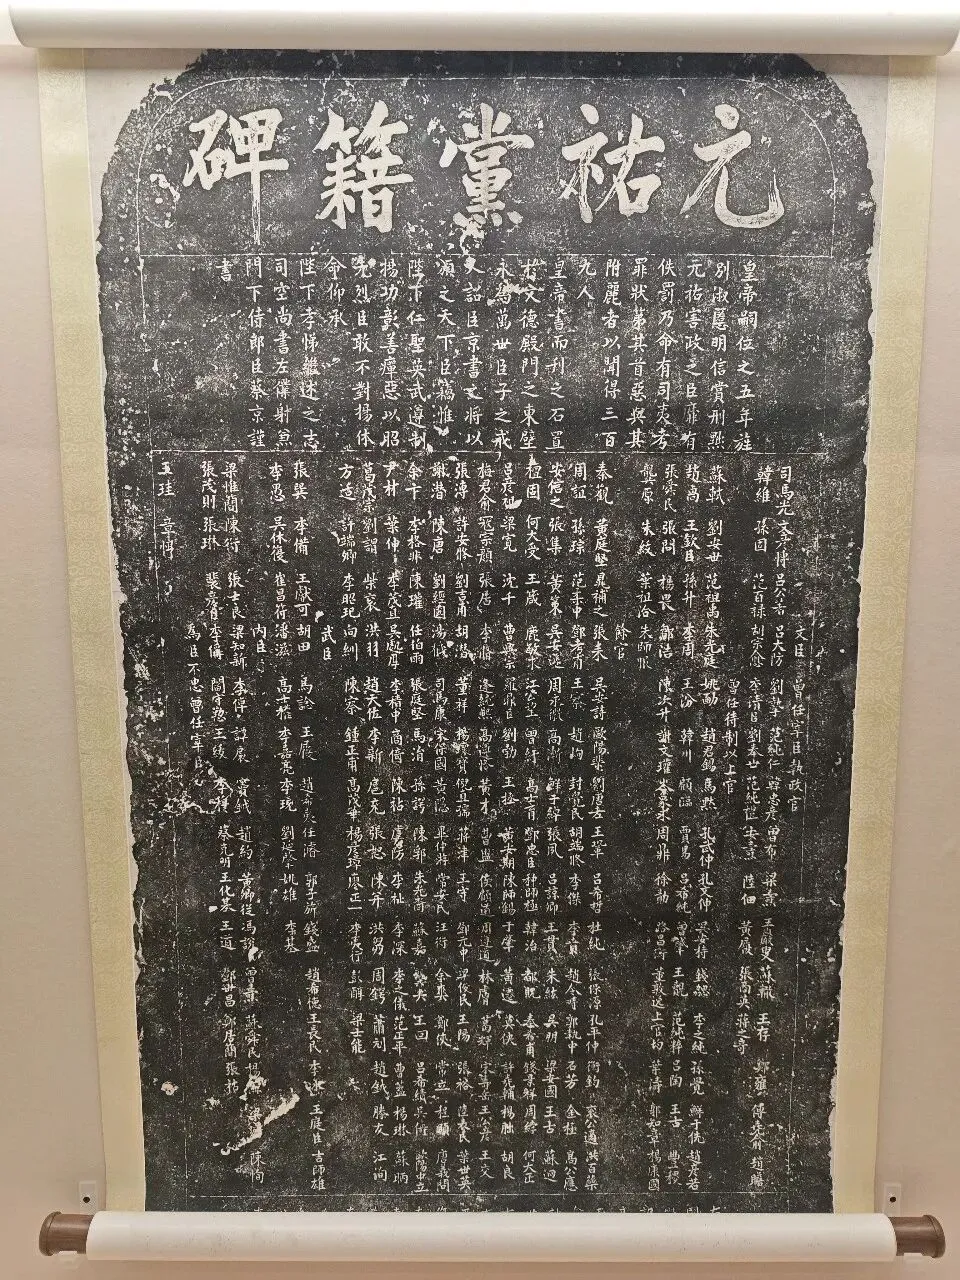 元祐黨籍碑
皇帝嗣位之五年旌
別淑慝明信賞刑黜
元祐害政之臣靡有
佚罰乃命有司夷考
罪狀第其首惡與其
附麗者以聞得三百
九人
皇帝書而刊之石置
於文德殿門之東壁
永為萬世臣子之戒
又詔臣京書之將以
頒之天下臣竊惟
陛下仁聖英武遵制
揚功彰善癉惡以昭
先烈臣敢不對揚休
命仰承
陛下孝悌繼述之志
司空尚書左僕射兼
門下侍郎臣蔡京謹
書
文臣 曾任宰臣執政官
司馬光 文彥博 呂公著 呂大防 劉摯 范純仁 韓忠彥 曾布 梁燾 王巖叟 蘇轍 王存 鄭雍 傅堯俞 趙瞻
韓維 孫固 范百祿 胡宗愈 李清臣 劉奉世 范純禮 安燾 陸佃 黃履 張商英 蔣之奇
曾任待制以上官
蘇軾 劉安世 范祖禹 朱光庭 姚勔 趙君錫 馬默 孔武仲 孔文仲 吳安持 錢勰 李之純 孫覺 鮮于侁 趙彥若
趙卨 王欽臣 孫升 李周 王汾 韓川 顧臨 賈易 呂希純 曾肇 王覿 范純粹 呂陶 王古 豐稷
張舜民 張問 楊畏 鄒浩 陳次升 謝文瓘 岑象求 周鼎 徐勣 路昌衡 董敦逸 上官均 葉濤 郭知章 楊康國
龔原 朱紱 葉祖洽 朱師服
餘官
秦觀 黃庭堅 晁補之 張耒 吳安詩 歐陽棐 劉唐老 王鞏 呂希哲 杜純 張保源 孔平仲 衡鈞 兗公適 百藥
周誼 孫琮 范柔中 鄧考甫 王察 趙峋 封覺民 胡端修 李傑 李賁 趙令畤 郭執中 石芳 金極 高公應
安信之 張集 黃策 吳安遜 周永徽 高漸 鮮于綽 張夙 呂諒卿 王貫 朱紘 吳朋 梁安國 王古 蘇迥
檀固 何大受 王箴 鹿敏求 江公望 曾紆 高士育 鄧忠臣 种師極 韓治 都貺 秦希甫 錢景祥 周綍 何大正
呂彥祖 梁寬 沈千 曹興宗 羅鼎臣 劉勃 王拯 黃安期 陳師錫 于肇 黃遷 莫俠 許堯輔 楊朏 胡良
梅君俞 寇宗顏 張居 李脩 逢純熙 高遵恪 黃才 曹盥 侯顧道 周遵道 林膚 葛輝 宋壽岳 王公彥 王交
張溥 許安修 劉吉甫 胡潛 董祥 楊瓌寶 倪直孺 蔣津 王守 鄧允中 梁俊民 王陽 張裕 陸表民 葉世英
謝潛 陳唐 劉經國 湯戫 司馬康 宋保國 黃隱 畢仲游 常安民 汪衍 余爽 鄭俠 常立 程頤 唐義問
余卞 李格非 陳瓘 任伯雨 張庭堅 馬涓 孫諤 陳郛 朱光裔 蘇嘉 龔夬 王回 呂希績 吳儔 歐陽中立
尹材 葉伸 李茂直 吳處厚 李積中 商倚 陳祐 虞防 李祉 李深 李之儀 范正平 曹蓋 楊琳 蘇昞
葛茂宗 劉謂 柴袞 洪羽 趙天佐 李新 扈充 張恕 陳并 洪芻 周鍔 蕭刓 趙越 滕友 江洵
方适 許端卿 李昭玘 向紃 陳察 鍾正甫 高茂華 楊彥璋 廖正一 李夷行 彭醇 梁士能
武臣
張巽 李備 王獻可 胡田 馬諗 王履 趙希夷 任濬 郭子旂 錢盛 趙希德 王長民 李永 王庭臣 吉師雄
李愚 吳休復 崔昌符 潘滋 高士權 李嘉亮 李珫 劉延肇 姚雄 李基
內臣
梁惟簡 陳衍 張士良 梁知新 李倬 譚扆 竇鉞 趙約 黃卿從 馮說 曾燾 蘇舜民 楊偁 梁 陳恂
張茂則 張琳 裴彥臣 李偁 閻守懃 王紱 李穆 蔡克明 王化基 王道 鄧世昌 鄭居簡 張祐
為臣不忠曾任宰臣
王珪 章惇